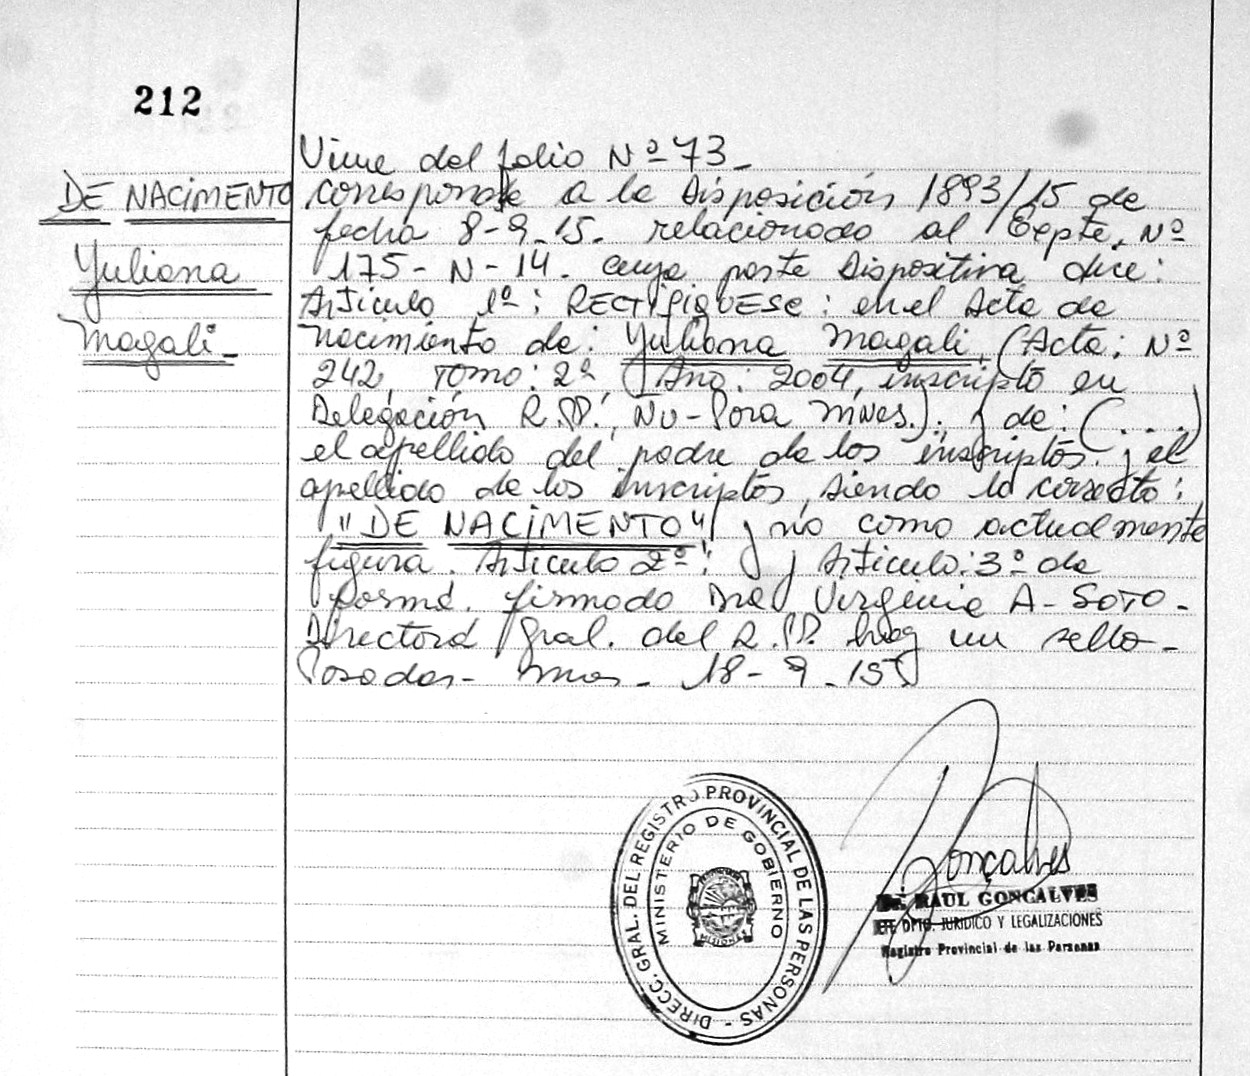 212
DE NACIMENTO
Yuliana
Magali_
Viene del folio Nº 73_
corresponde a la Disposición 1893/15 de
fecha 8-9-15. relacionado al Expte. Nº
175-N-14. cuya parte dispositiva dice:
Artículo 1º: RECTIFIQUESE: en el Acta de
nacimiento de: Yuliana Magali (Acta: Nº
242, Tomo: 2º, Año: 2004, inscripto en
Delegación R.PP. Ñu-Pora Mnes.). y de: (....)
el apellido del padre de los inscriptos y el
apellido de los inscriptos, siendo lo correcto:
"DE NACIMENTO" y no como actualmente
figura. Artículo 2º: y Artículo: 3º de
forma. firmado Dra Virginia A. SOTO-
Directora Gral. del R.PP. hay un sello-
Posadas- Mnes- 18-9-15
DIRECC. GRAL. DEL REGISTRO PROVINCIAL DE LAS PERSONAS -
MINISTERIO DE GOBIERNO
MISIONES
Gonçalves
Dr. RAUL GONCALVES
JEFE DPTO. JURIDICO Y LEGALIZACIONES
Registro Provincial de las Personas